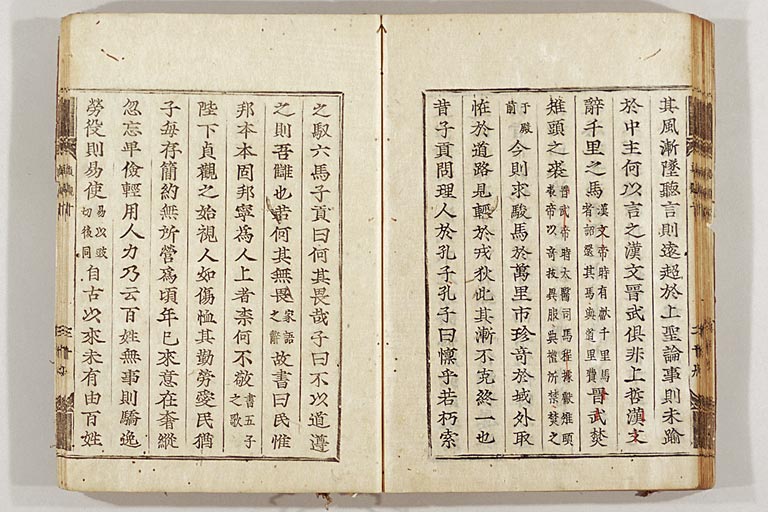 其風漸墜聽言則遠超於上聖論事則未踰
於中主何以言之漢文晉武俱非上哲漢文
辭千里之馬漢文帝時有獻千里馬者詔還其馬與道里費晉武焚
雉頭之裘晉武帝時太醫司馬程據獻雉頭裘帝以奇技異服典禮所禁焚之
于殿前今則求駿馬於萬里市珍奇於域外取
恠於道路見輕於戎狄此其漸不克終一也
昔子貢問理人於孔子孔子曰懍乎若朽索
之馭六馬子貢曰何其畏哉子曰不以道遵
之則吾讎也若何其無畏家語之辭故書曰民惟
邦本本固邦寧為人上者柰何不敬書五子之歌
陛下貞觀之始視人如傷恤其勤勞愛民猶
子每存簡約無所營為頃年已來意在奢縱
忽忘卑儉輕用人力乃云百姓無事則驕逸
勞役則易使易以豉切後同自古以來未有由百姓